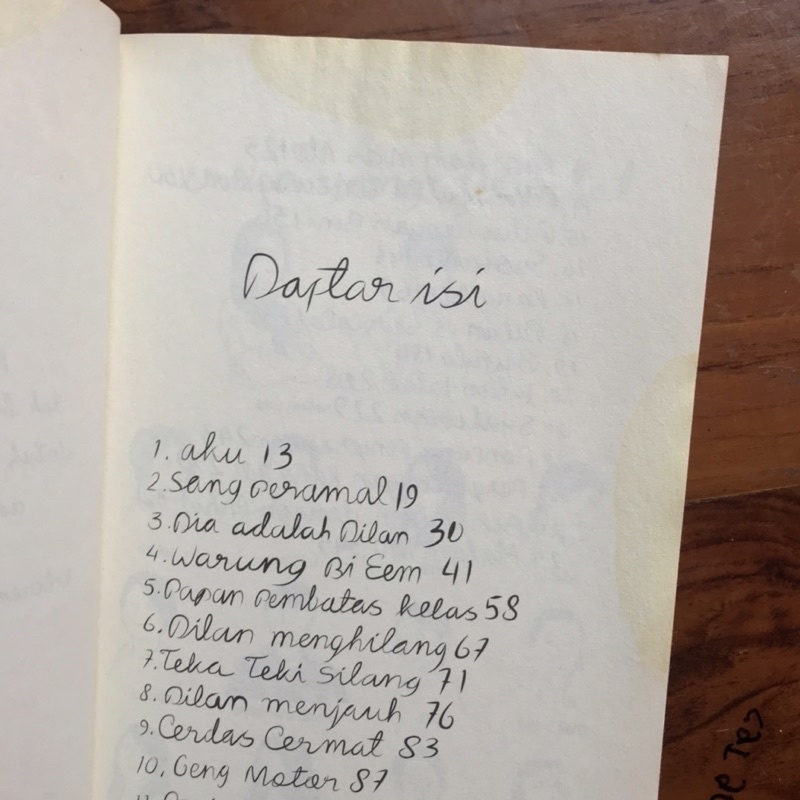 Daftar isi
1. aku 13
2. Sang Peramal 19
3. Dia adalah Dilan 30
4. Warung Bi Eem 41
5. Papan Pembatas kelas 58
6. Dilan menghilang 67
7. Teka Teki Silang 71
8. Dilan menjauh 76
9. Cerdas Cermat 83
10. Geng Motor 87